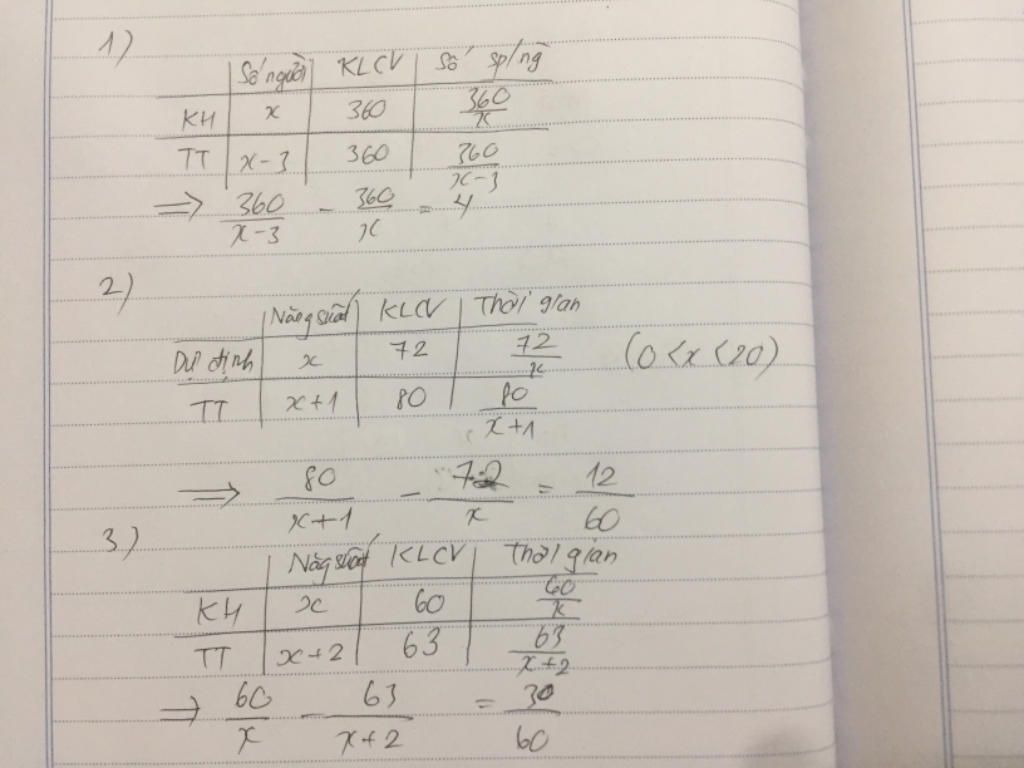 1)
Số người KLCV Số sp/ng
KH x 360 360/x
TT x-3 360 360/x-3
=> 360/x-3 - 360/x = 4
2)
Năng suất KLCV Thời gian
Dự định x 72 72/x (0<x<20)
TT x+1 80 80/x+1
=> 80/x+1 - 72/x = 12/60
3)
Năng suất KLCV Thời gian
KH x 60 60/x
TT x+2 63 63/x+2
=> 60/x - 63/x+2 = 30/60